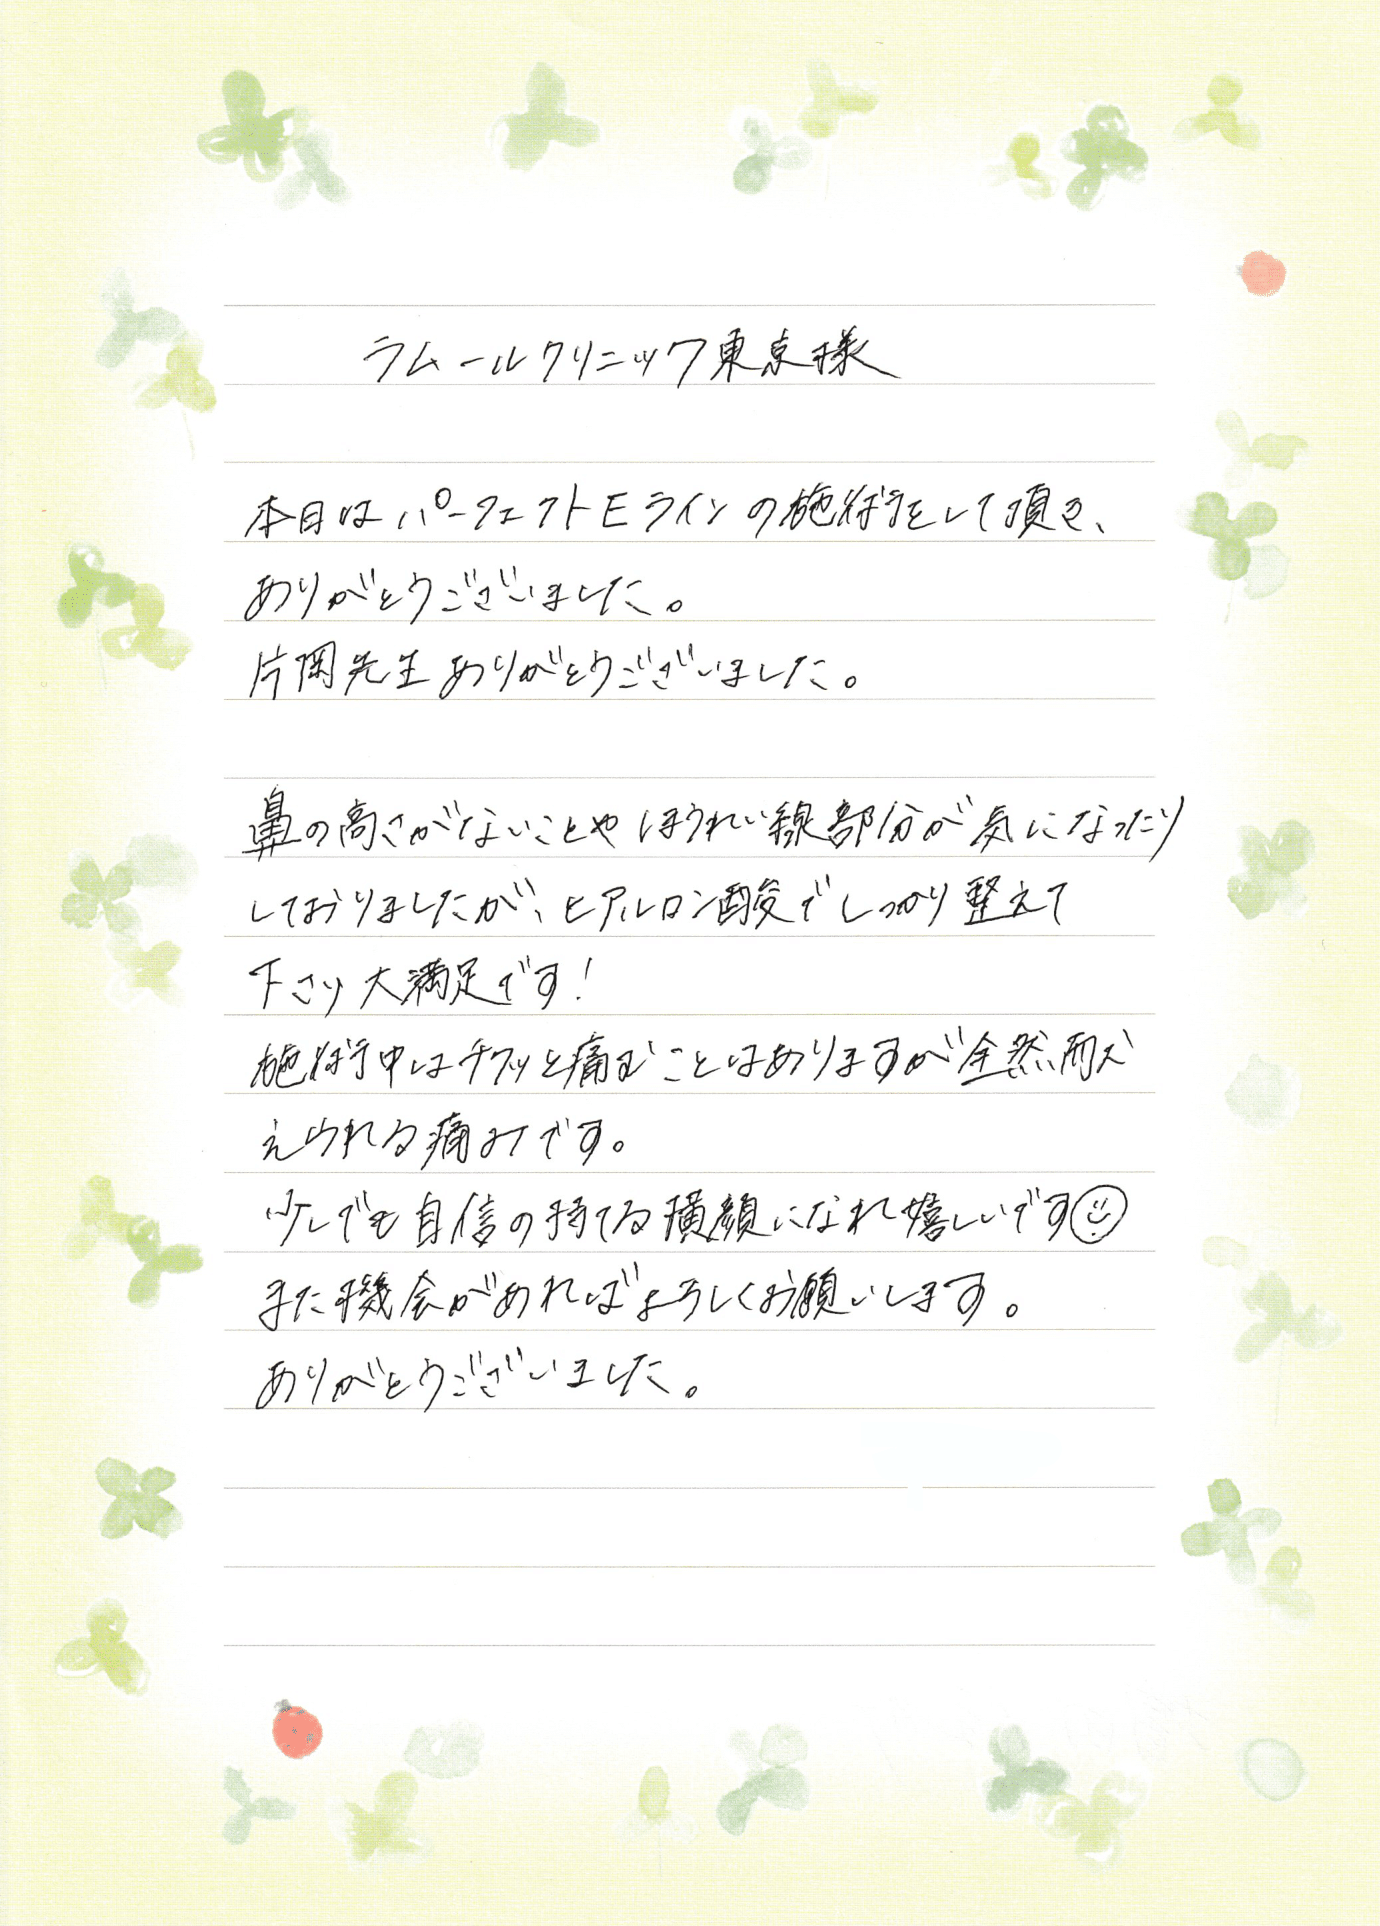 ラムールクリニック東京様
本日はパーフェクトEラインの施術をして頂き、
ありがとうございました。
片岡先生ありがとうございました。
鼻の高さがないことやほうれい線部分が気になったり
しておりましたが、ヒアルロン酸でしっかり整えて
下さり大満足です!
施術中はチクッと痛むことはありますが全然耐え
えられる痛みです。
少しでも自信の持てる横顔になれ嬉しいです☺
また機会があればよろしくお願いします。
ありがとうございました。